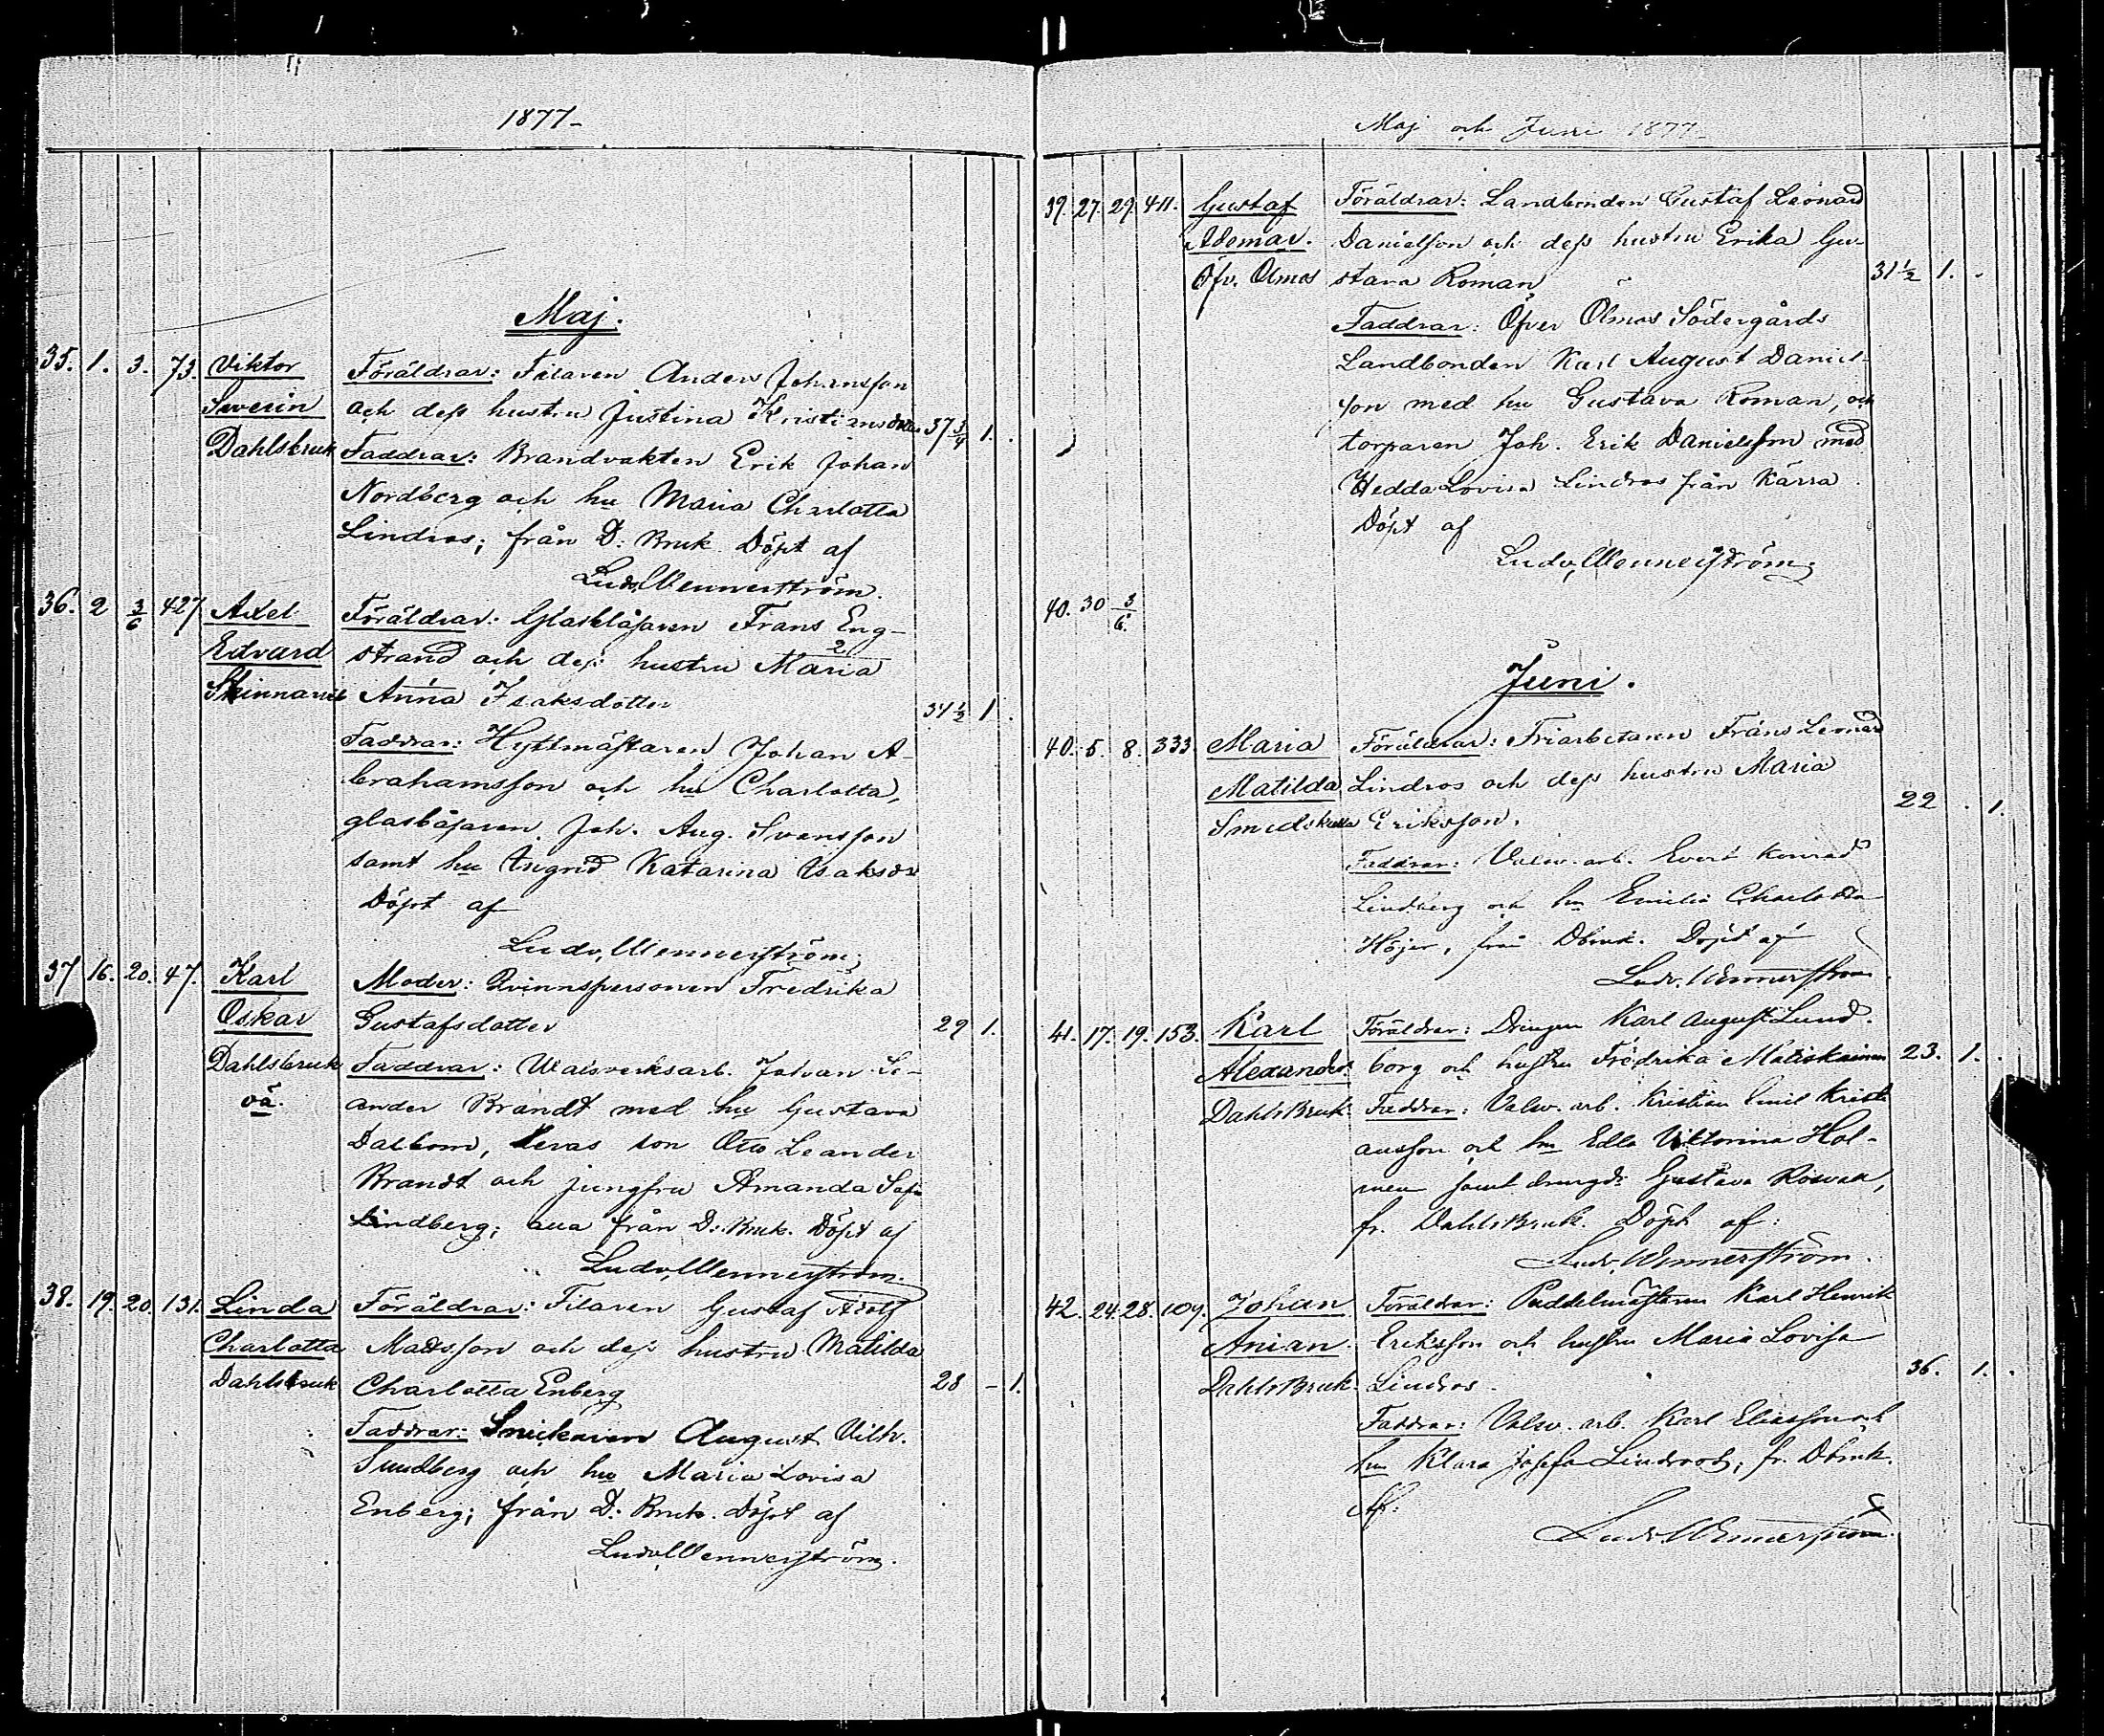 1877-
Maj.
35. 1. 3. 73. Viktor Föräldrar: Filaren Anders Johansson
Severin och dess hustru Justina Kristiansdotter 37 3/4 1.
Dahlsbruk Faddrar: Brandvakten Erik Johan
Nordberg och hu Maria Charlotta
Lindros; från D: Bruk Döpt af
Ludv. Wennerström.
36. 2 3/6 427 Axel Föräldrar: Glasblåsaren Frans Eng-
Edvard strand och dess hustru Maria 2
Skinnarvik Anna 1 Isaksdotter 34 1/2 1.
Faddrar: Hyttmästaren Johan A-
brahamsson och hu Charlotta,
glasblåsaren Joh. Aug. Svensson
samt hu Ingrid Katarina Isaksdr
Döpt af
Ludv. Wennerström.
37 16. 20. 47. Karl Moder: Qvinnspersonen Fredrika
Oskar Gustafsdotter 29 1.
Dahlsbruk Faddrar: Walsverksarb. Johan Le-
oä. ander Brandt med hu Gustava
Dalbom, deras son Otto Leander
Brandt och jungfru Amanda Sofia
Lindberg; alla från D: Bruk. Döpt af
Ludv. Wennerström.
38. 19. 20. 131. Linda Föräldrar: Filaren Gustaf Adolf
Charlotta Madsson och dess hustru Matilda
Dahlsbruk Charlotta Enberg 28 - 1.
Faddrar: Snickaren August Vilh.
Sundberg och hu Maria Lovisa
Enberg; från D: Bruk. Döpt af
Ludv. Wennerström.
Maj och Juni 1877-
39. 27. 29. 411. Gustaf Föräldrar: Landbonden Gustaf Leonard
Ademar. Danielson och dess hustru Erika Gu-
Öfv. Ölmos stava Roman 31 1/2 1.
Faddrar: Öfver Ölmos Södergårds
Landbonden Karl August Daniel-
son med hu Gustava Roman, och
torparen Joh. Erik Danielsson med
Hedda Lovisa Lindros från Kärra
Döpt af
Ludv. Wennerström.
40. 30 3/6.
Juni.
40. 5. 8. 333. Maria Föräldrar: Friarbetaren Frans Leonard
Matilda Lindros och dess hustru Maria
Smedskulla Eriksson. 22 . 1.
Faddrar: Valsv. arb. Evert Konrad
Lindberg och hu Emilia Charlotta
Höjer, från Dbruk. Döpt af
Ludv. Wennerström.
41. 17. 19. 153. Karl Föräldrar: Drängen Karl August Lund-
Alexander borg och hustru Fredrika Matiskainen 23. 1.
DahlsBruk Faddrar: Valsv. arb. Kristian Emil Kristi
ansson och hu Edla Viktorina Hol-
men samt Gustava Roman,
fr. DahlsBruk. Döpt af:
Ludv. Wennerström.
42. 24. 28. 109. Johan Föräldrar: Puddelmästaren Karl Henrik
Anian Eriksson och hustru Maria Lovisa
DahlsBruk. Lindros. 36. 1.
Faddrar: Valsv. arb. Karl Eliasson och
hu Klara Josefa Lindroos, fr. Dbruk.
Af:
Ludv. Wennerström